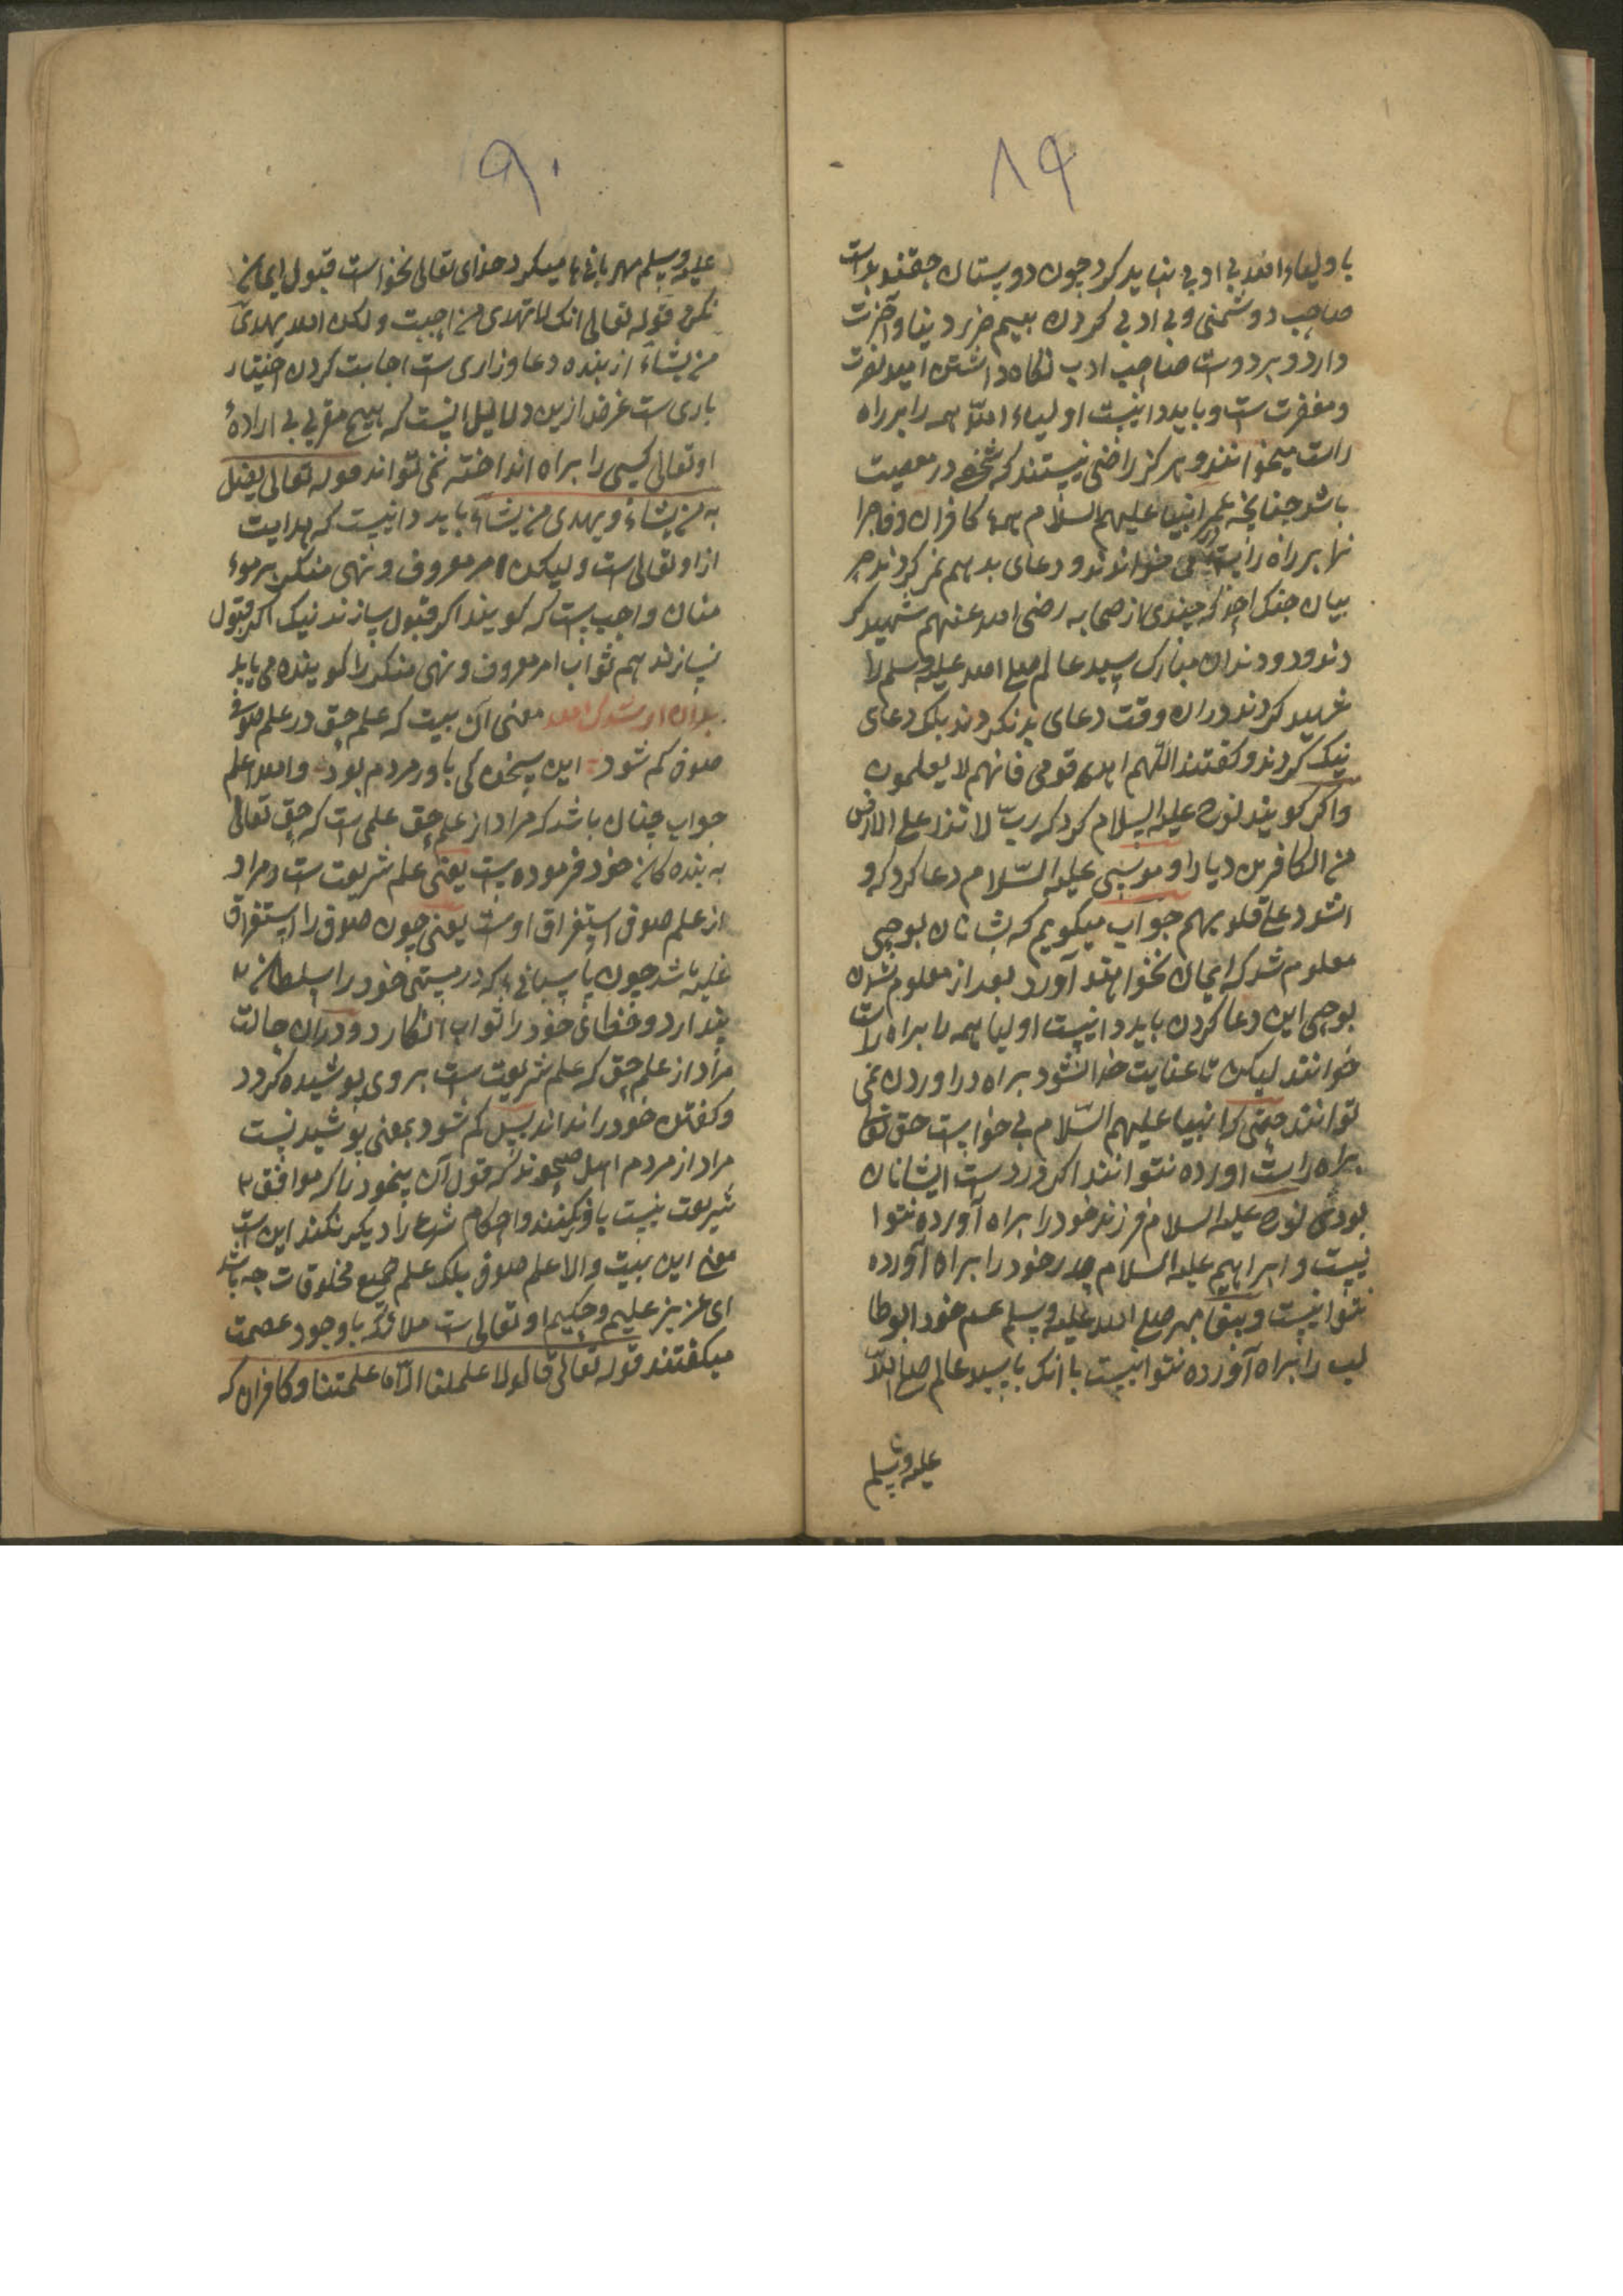 ۸۹
باولیاء الله بی ادبی نباید کرد چون دوستان حقند بدانست
صاحب دوشمنی و بی ادبی کردن بیم ضرر دنیا و آخرت
دارد و بر دوست صاحب ادب نگاه داشتن امید نصرت
و مغفرت ست و باید دانیست اولیاء الله همه را بر راه
راست میخوانند و هرکز راضی نیستند که شخصی در معصیت
باشد چنانچه انبیا علیهم السلام همهء کافران و فاجرا
نها بر راه راست می خواندند و دعای بد هم نمیکردند
بیان جنک احد که چندی از صحابه رضی الله عنهم شهید کر
دند و دندان مبارک سید عالم صلی الله علیه وسلم را
شهید کردند دران وقت دعای بد نکردند بلک دعای
نیک کردند و کفتند اللهم اهد قومی فانهم لا یعلمون
واکر کویند نوح علیه السلام کرد که رب لا تذر علی الارض
من الکافرین دیارا و موسی علیه السلام دعا کرد که و
اشدد علی قلوبهم جواب میکویم که بشانان بوحی
معلوم شد که ایمان نخواهند آورد بعد از معلوم شدن
بوحی این دعا کردن باید دانیست اولیا همه را براه راست
خوانند لیکن تا عنایت خدا نشود براه در اوردن نمی
توانند حتی که انبیا علیهم السلام بی خواست حق تعالی
براه راست اورده نتوانند اکر در دست ایشانان
بودی نوح علیه السلام فرزند خود را براه آورده نتوا
نیست و ابراهیم علیه السلام پدر خود را براه آورده
نتوانیست و پیغامبر صلی الله علیه وسلم عم خود ابوطا
لب را براه آورده نتوانیست باانک با سید عالم صلی الله
علیه وسلم
۹۰
علیه وسلم مهربانی ها میکرد خدای تعالی نخواست قبول ایمان
نکرد قوله تعالی انک لا تهدی من احببت ولکن الله یهدی
من یشاء از بنده دعا و زاری ست اجابت کردن اختیار
باری ست غرض ازین دلایل اینست که هیچ مقربی بی ارادهٔ
او تعالی کسی را براه انداخته نمی تواند قوله تعالی یضل
به من یشاء و یهدی من یشاء باید دانیست که هدایت
از او تعالی است و لیکن امر معروف و نهی منکر بر موء
منان واجب ست که کویند اکر قبول سازند نیک اکر قبول
نسازند هم ثواب امر معروف و نهی منکر را کوینده می یابد
بدان ارشدک الله معنی آن بیت که علم حق در علم صوفی
صوفی کم شود این سخن کی باور مردم بود والله اعلم
جواب چنان باشد که مراد از علم حق علمی است که حق تعالی
به بنده کان خود فرموده ست یعنی علم شریعت ست و مراد
از علم صوفی استغراق اوست یعنی چون صوفی را استغراق
غلبه باشد چون پاسبانی که در مستی خود را سلطان
پندارد و خطای خود را ثواب انکارد و دران حالت
مراد از علم حق که علم شریعت ست بر وی پوشیده کردد
و کفتن خود را نداند پس کم شود بمعنی پوشید نیست
مراد از مردم اهل صحوند که قول آن بیخود را که موافق
شریعت نیست باور نکنند و احکام شرع را دیکر نکنند این ست
معنی این بیت والا علم صوفی بلک علم جمیع مخلوقات چه باشد
ای عزیز علیم و حکیم او تعالی ست ملائکه با وجود عصمت
میکفتند قوله تعالی قالوا لا علم لنا الا ما علمتنا و کافران که